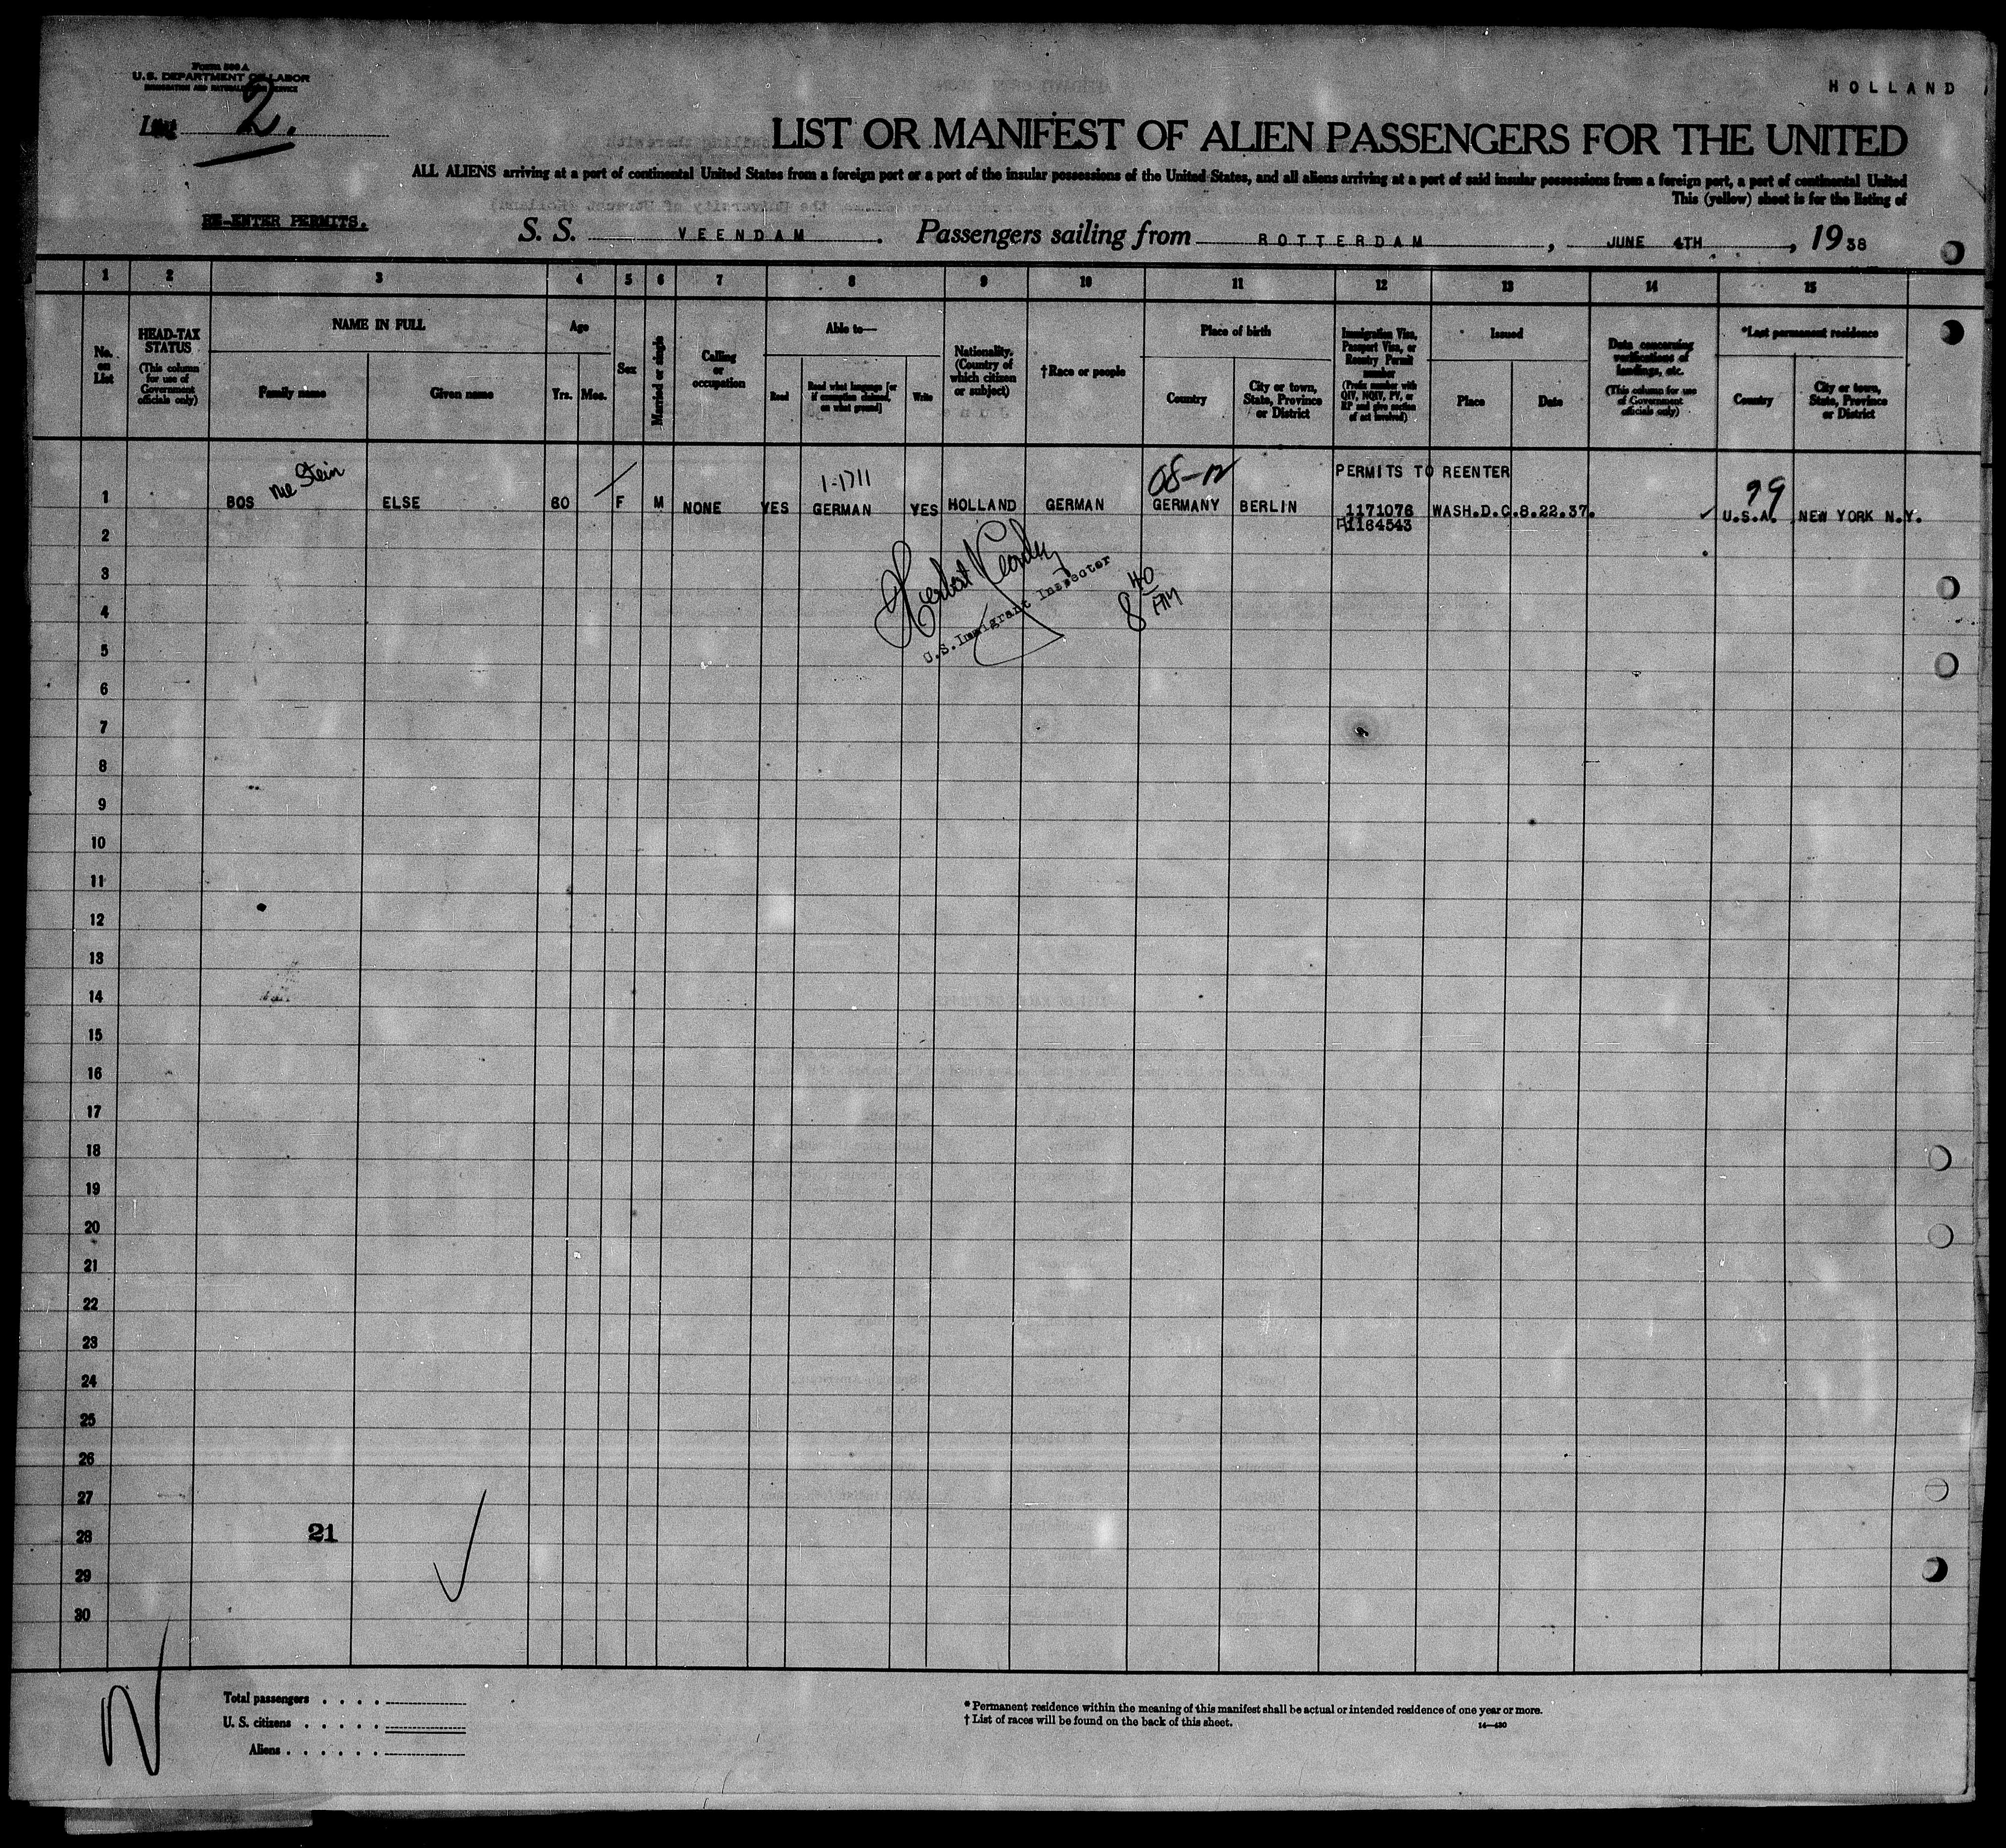 Form 500 A
U.S. DEPARTMENT OF LABOR
IMMIGRATION AND NATURALIZATION SERVICE
HOLLAND
List 2.
LIST OR MANIFEST OF ALIEN PASSENGERS FOR THE UNITED
ALL ALIENS arriving at a port of continental United States from a foreign port or a port of the insular possessions of the United States, and all aliens arriving at a port of said insular possessions from a foreign port, a port of continental United
This (yellow) sheet is for the listing of
RE-ENTER PERMITS.
S. S. VEENDAM. Passengers sailing from ROTTERDAM, JUNE 4TH, 1938
1 2 3 4 5 6 7 8 9 10 11 12 13 14 15
No. on List
HEAD-TAX STATUS
(This column for use of Government officials only)
NAME IN FULL
Family name
Given name
Age
Yrs. Mos.
Sex
Married or single
Calling or occupation
Able to—
Read
Read what language [or if exemption claimed, on what ground]
Write
Nationality. (Country of which citizen or subject)
†Race or people
Place of birth
Country
City or town, State, Province or District
Immigration Visa, Passport Visa, or Reentry Permit number
(Prefix number with QIV, NQIV, PV, or RP and give section of act involved)
Issued
Place
Date
Data concerning verifications of landings, etc.
(This column for use of Government officials only)
*Last permanent residence
Country
City or town, State, Province or District
PERMITS TO REENTER
nee Stein
1-1711
99
1 BOS ELSE 60 F M NONE YES GERMAN YES HOLLAND GERMAN GERMANY BERLIN 1171076 WASH.D.C. 8.22.37. ✓ U.S.A. NEW YORK N.Y.
1164543
2
3
U.S. Immigrant Inspector
8 40 AM
4
5
6
7
8
9
10
11
12
13
14
15
16
17
18
19
20
21
22
23
24
25
26
27
28
21
29
30
N
Total passengers . . . .
U. S. citizens . . . . .
Aliens . . . . . .
* Permanent residence within the meaning of this manifest shall be actual or intended residence of one year or more.
† List of races will be found on the back of this sheet.
14—430